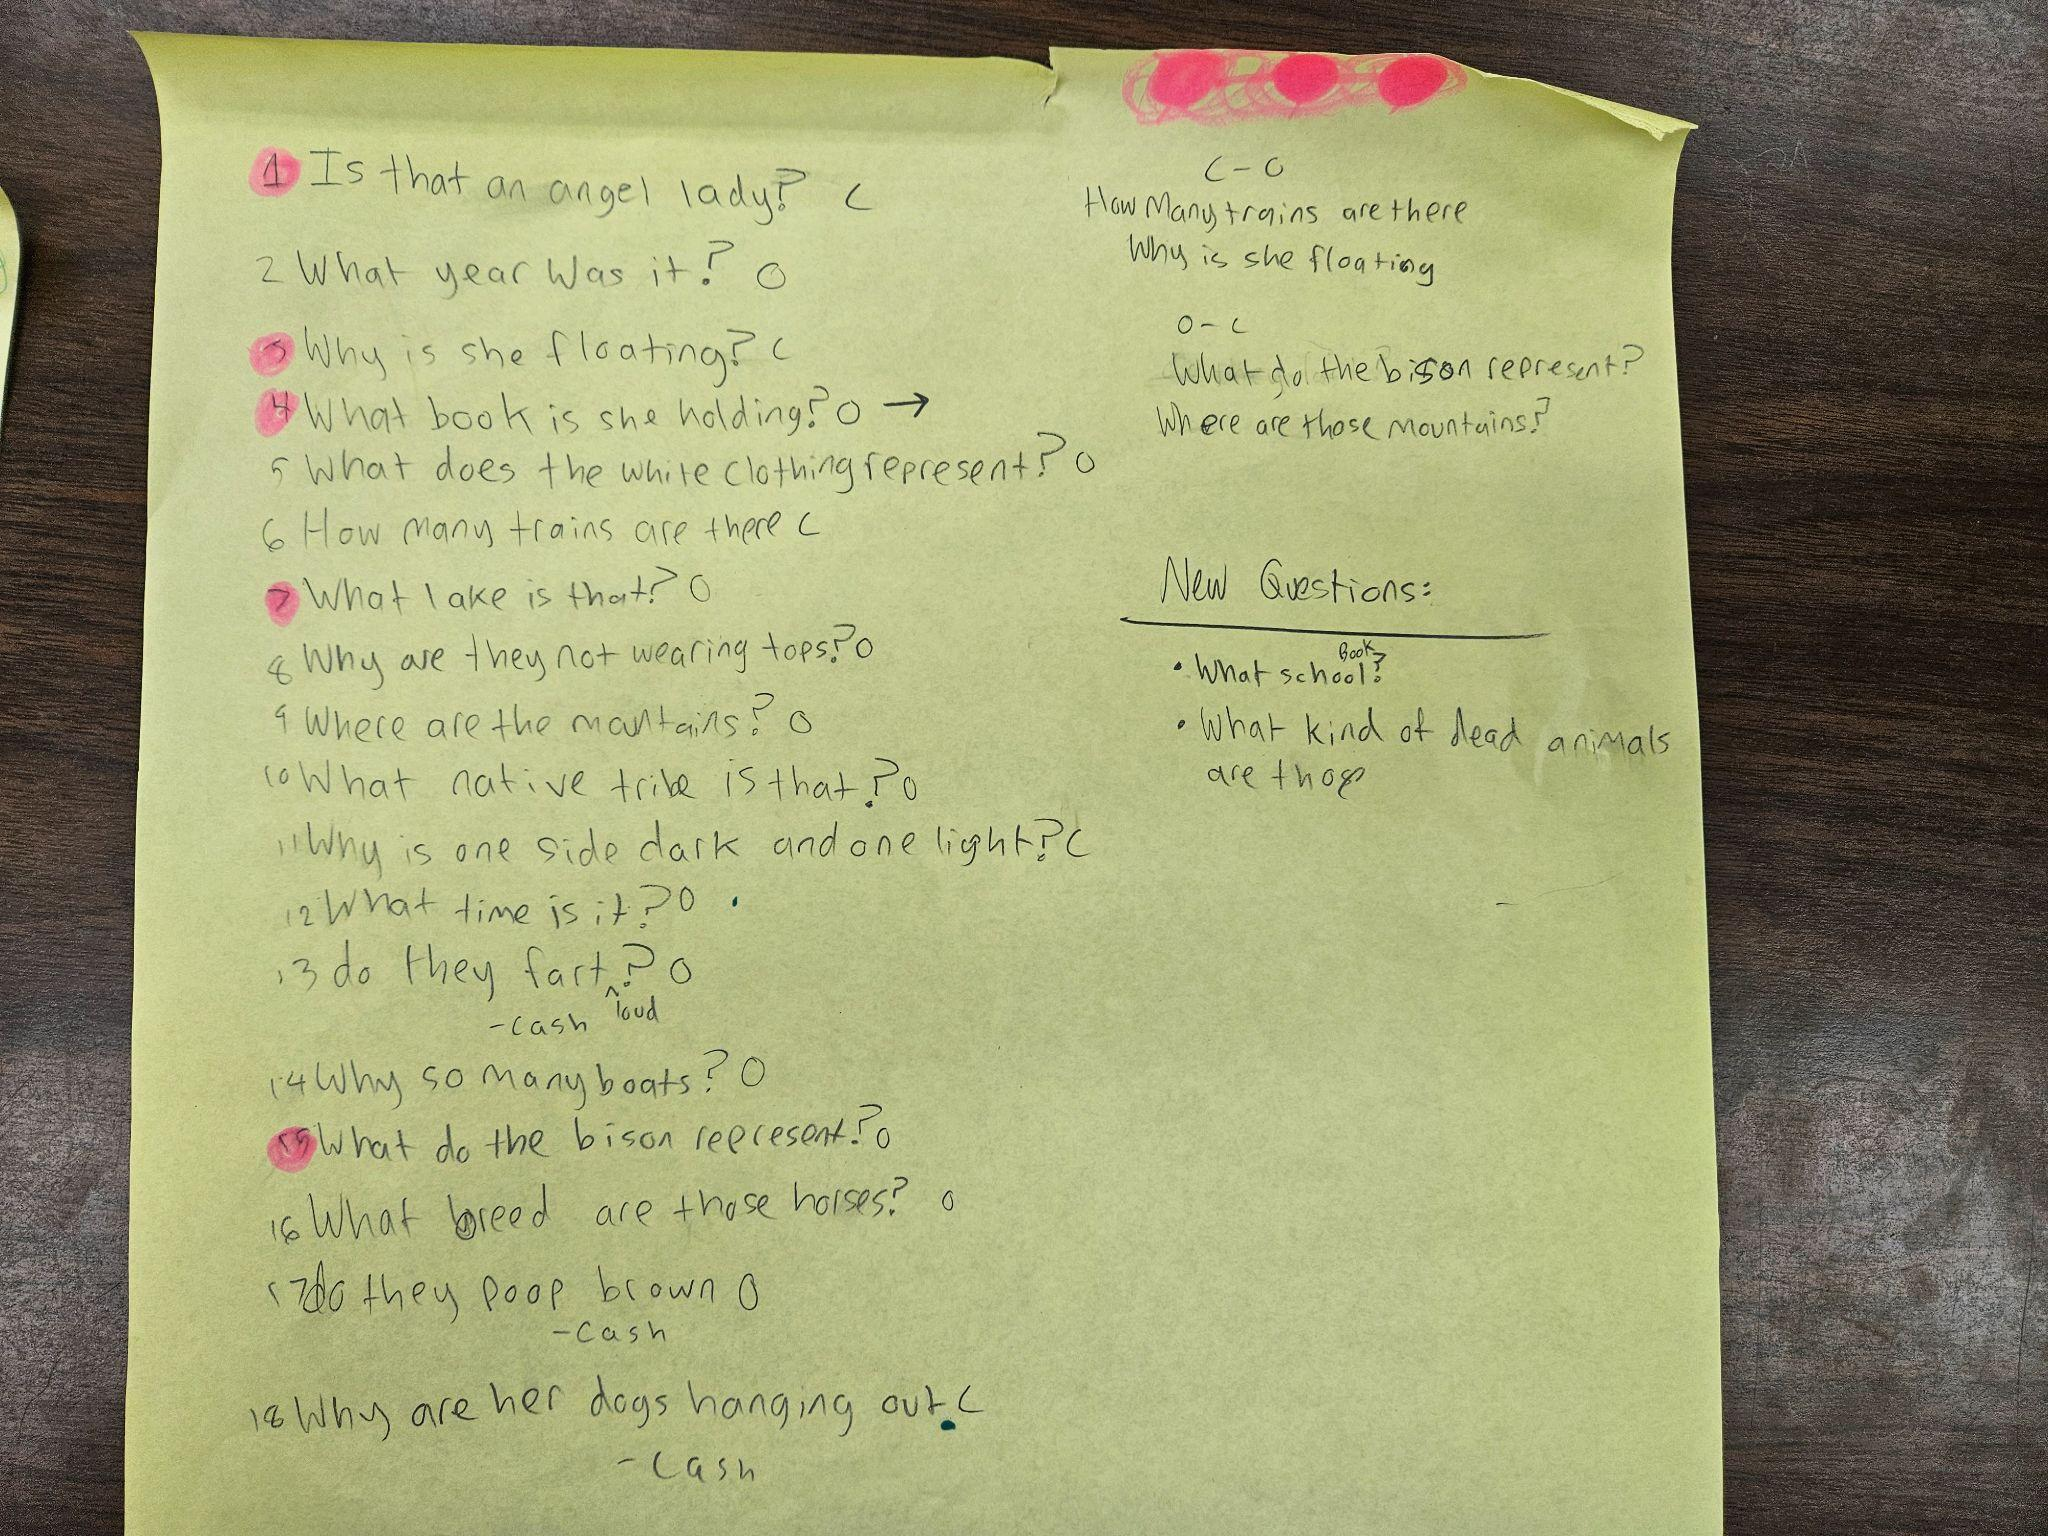 1 Is that an angel lady? C
2 What year was it? O
3 Why is she floating? C
4 What book is she holding? O →
5 What does the white clothing represent? O
6 How many trains are there C
7 What lake is that? O
8 Why are they not wearing tops? O
9 Where are the mountains? O
10 What native tribe is that? O
11 Why is one side dark and one light? C
12 What time is it? O
13 do they fart ^ ? O
loud
-cash
14 Why so many boats? O
15 What do the bison represent? O
16 What breed are those horses? O
17 do they poop brown O
-cash
18 Why are her dogs hanging out. C
-cash
C-O
How Many trains are there
Why is she floating
O-C
What do the bison represent?
Where are those mountains?
New Questions:
Book
• What school?
• What kind of dead animals
are those